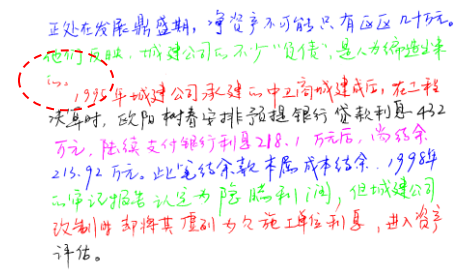 正处在发展鼎盛期，净资产不可能只有区区几十万元。
他们反映，城建公司的不少“负债”，是人为缔造出来
的。
1995年城建公司承建的中卫商城建成后，在工程
决算时，欧阳树春安排预提银行贷款利息432
万元，陆续支付银行利息218.1万元后，尚结余
213.92万元。此笔结余款本属成本结余，1998年
的审计报告认定为隐瞒利润，但城建公司
改制时却将其虚列为欠施工单位利息，进入资产
评估。